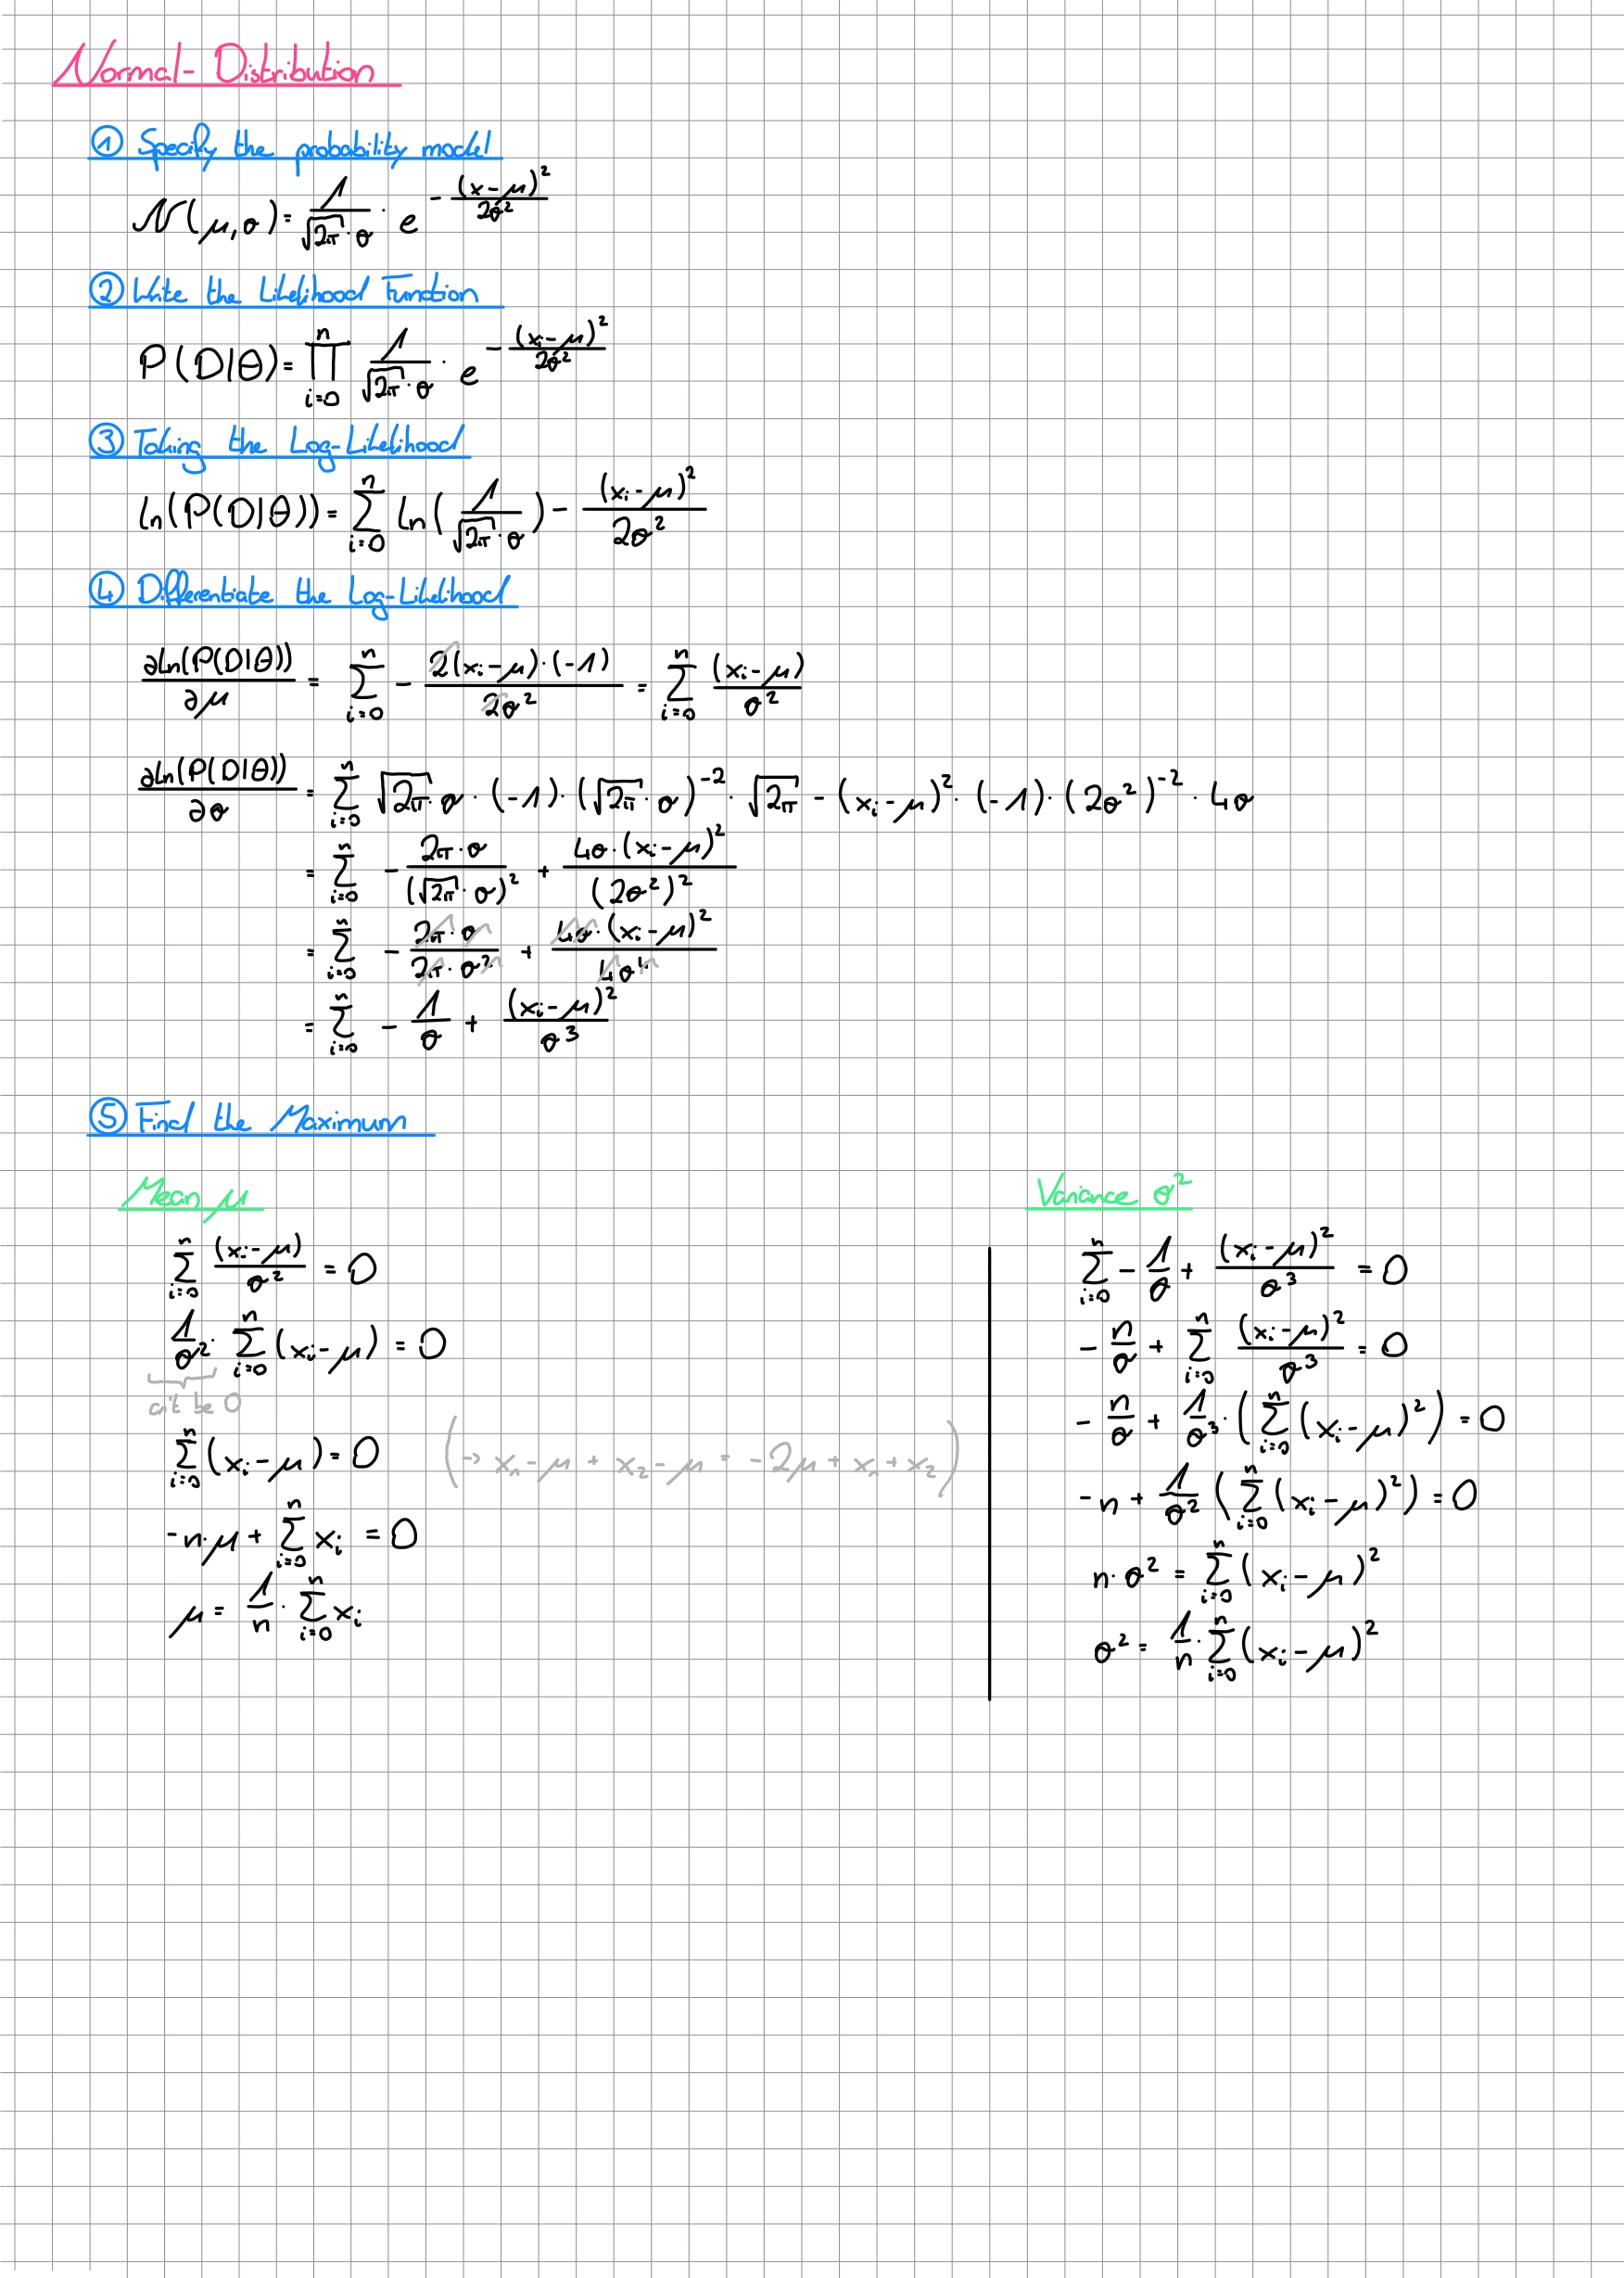 Normal-Distribution
① Specify the probability model
𝒩(μ,σ) = 1/(√2π · σ) · e^(-(x-μ)²/2σ²)
② Write the Likelihood Function
P(D|θ) = ∏_{i=0}^{n} 1/(√2π · σ) · e^(-(x_i-μ)²/2σ²)
③ Taking the Log-Likelihood
ln(P(D|θ)) = ∑_{i=0}^{n} ln(1/(√2π · σ)) - (x_i-μ)²/2σ²
④ Differentiate the Log-Likelihood
∂ln(P(D|θ))/∂μ = ∑_{i=0}^{n} - 2(x_i-μ)·(-1)/2σ² = ∑_{i=0}^{n} (x_i-μ)/σ²
∂ln(P(D|θ))/∂σ = ∑_{i=0}^{n} √2π · σ · (-1) · (√2π · σ)^-2 · √2π - (x_i-μ)² · (-1) · (2σ²)^-2 · 4σ
= ∑_{i=0}^{n} - 2π·σ/(√2π · σ)² + 4σ·(x_i-μ)²/(2σ²)²
= ∑_{i=0}^{n} - 2π·σ/2π·σ² + 4σ·(x_i-μ)²/4σ⁴
= ∑_{i=0}^{n} - 1/σ + (x_i-μ)²/σ³
⑤ Find the Maximum
Mean μ
∑_{i=0}^{n} (x_i-μ)/σ² = 0
1/σ² · ∑_{i=0}^{n} (x_i-μ) = 0
can't be 0
∑_{i=0}^{n} (x_i-μ) = 0 (→ x_1-μ + x_2-μ = -2μ + x_1 + x_2)
-n·μ + ∑_{i=0}^{n} x_i = 0
μ = 1/n · ∑_{i=0}^{n} x_i
Variance σ²
∑_{i=0}^{n} - 1/σ + (x_i-μ)²/σ³ = 0
- n/σ + ∑_{i=0}^{n} (x_i-μ)²/σ³ = 0
- n/σ + 1/σ³ · (∑_{i=0}^{n} (x_i-μ)²) = 0
-n + 1/σ² (∑_{i=0}^{n} (x_i-μ)²) = 0
n·σ² = ∑_{i=0}^{n} (x_i-μ)²
σ² = 1/n · ∑_{i=0}^{n} (x_i-μ)²